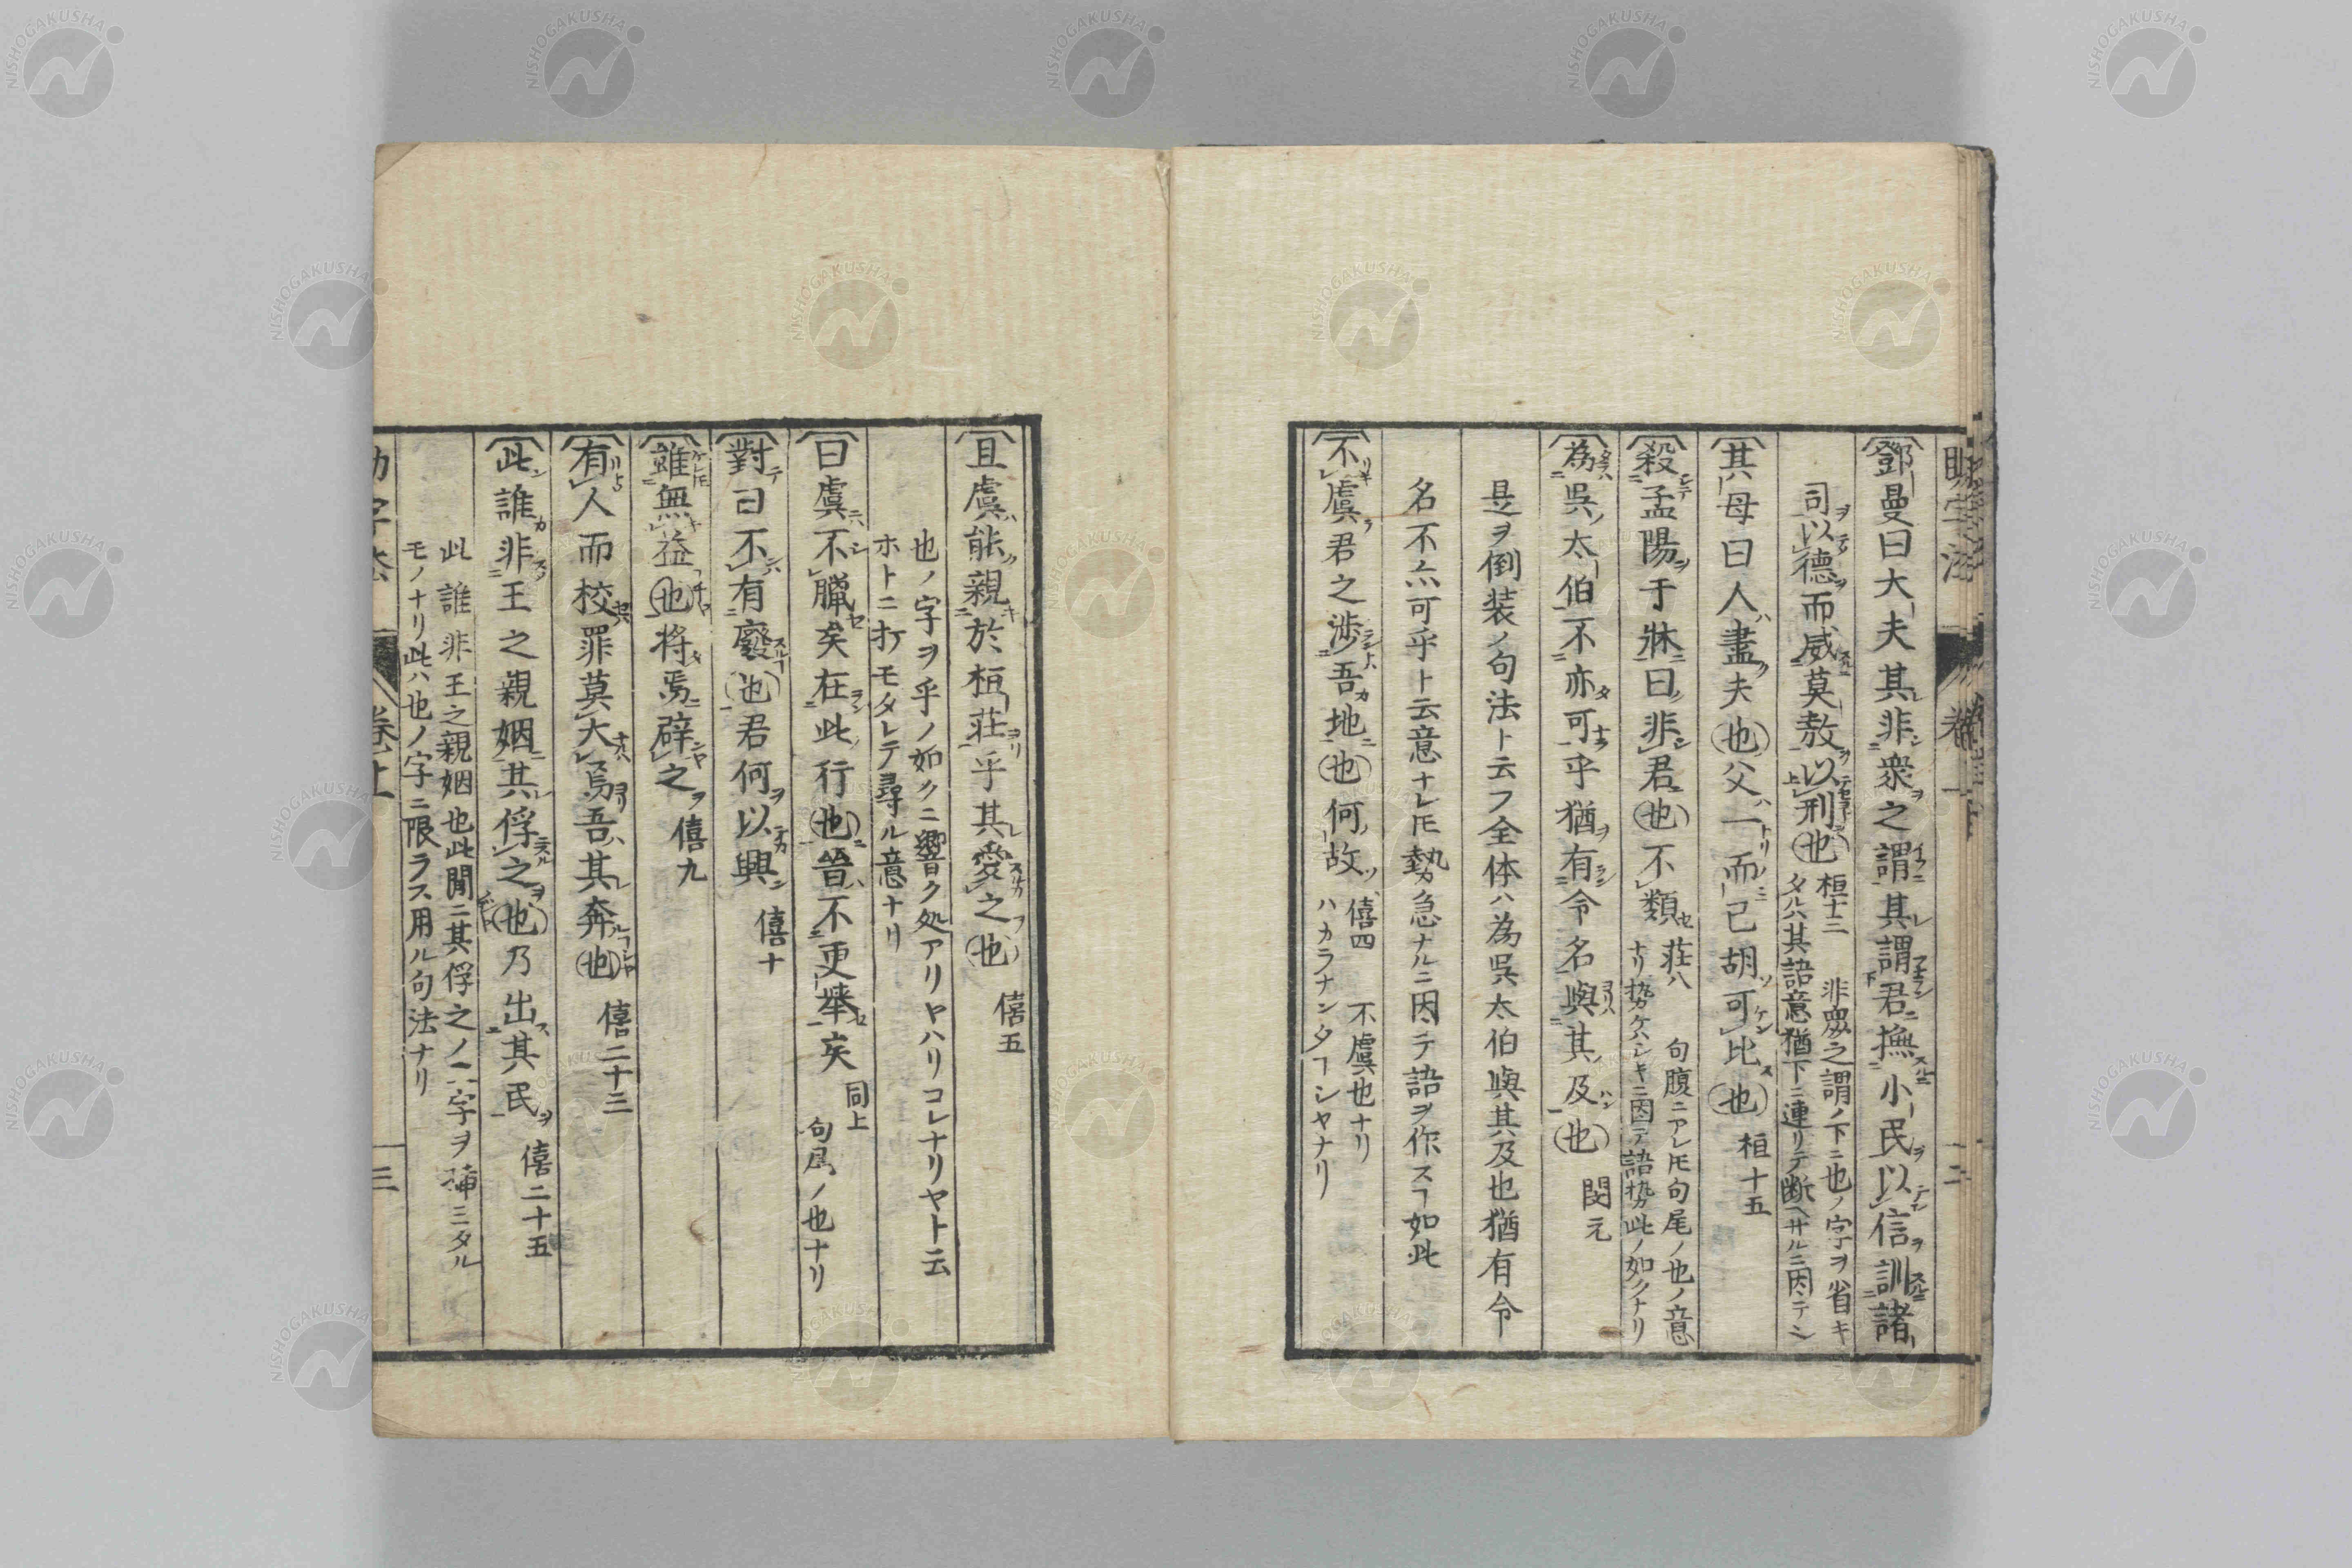 鄧曼曰大夫其非衆之謂其謂君撫小民以信訓諸
司以德而威莫敖以刑也
桓十三 非衆之謂ノ下ニ也ノ字ヲ省キ
タルハ其語意猶下ニ連リテ断ヘサルニ因テシ
其母曰人盡夫也父一而已胡可比也 桓十五
殺孟陽于牀曰非君也不類 荘八
句腹ニアレ𪜈句尾ノ也ノ意
ナリ勢カケハシキニ因テ語勢此ノ如クナリ
為呉太伯不亦可乎猶有令名與其及也 閔元
是ヲ倒装ノ句法ト云フ全体ハ為呉太伯與其及也猶有令
名不亦可乎ト云意ナレ𪜈勢急ナルニ因テ語ヲ作スヿ如此
不虞君之渉吾地也何故 僖四 不虞也ナリ
ハカラナンタヿシヤナリ
且虞能親於桓荘乎其愛之也 僖五
也ノ字ヲ乎ノ如クニ響ク処アリヤハリコレナリヤト云
ホトニ打モタレテ尋ル意ナリ
曰虞不臘矣在此行也晉不更舉矣 同上
句尾ノ也ナリ
對曰不有廢也君何以興 僖十
雖無益也将焉辟之 僖九
有人而校罪莫大焉吾其奔也 僖二十三
此誰非王之親姻其俘之也乃出其民 僖二十五
此誰非王之親姻也此間ニ其俘之ノ一字ヲ挿ミタル
モノナリ此ハ也ノ字ニ限ラス用ル句法ナリ
三